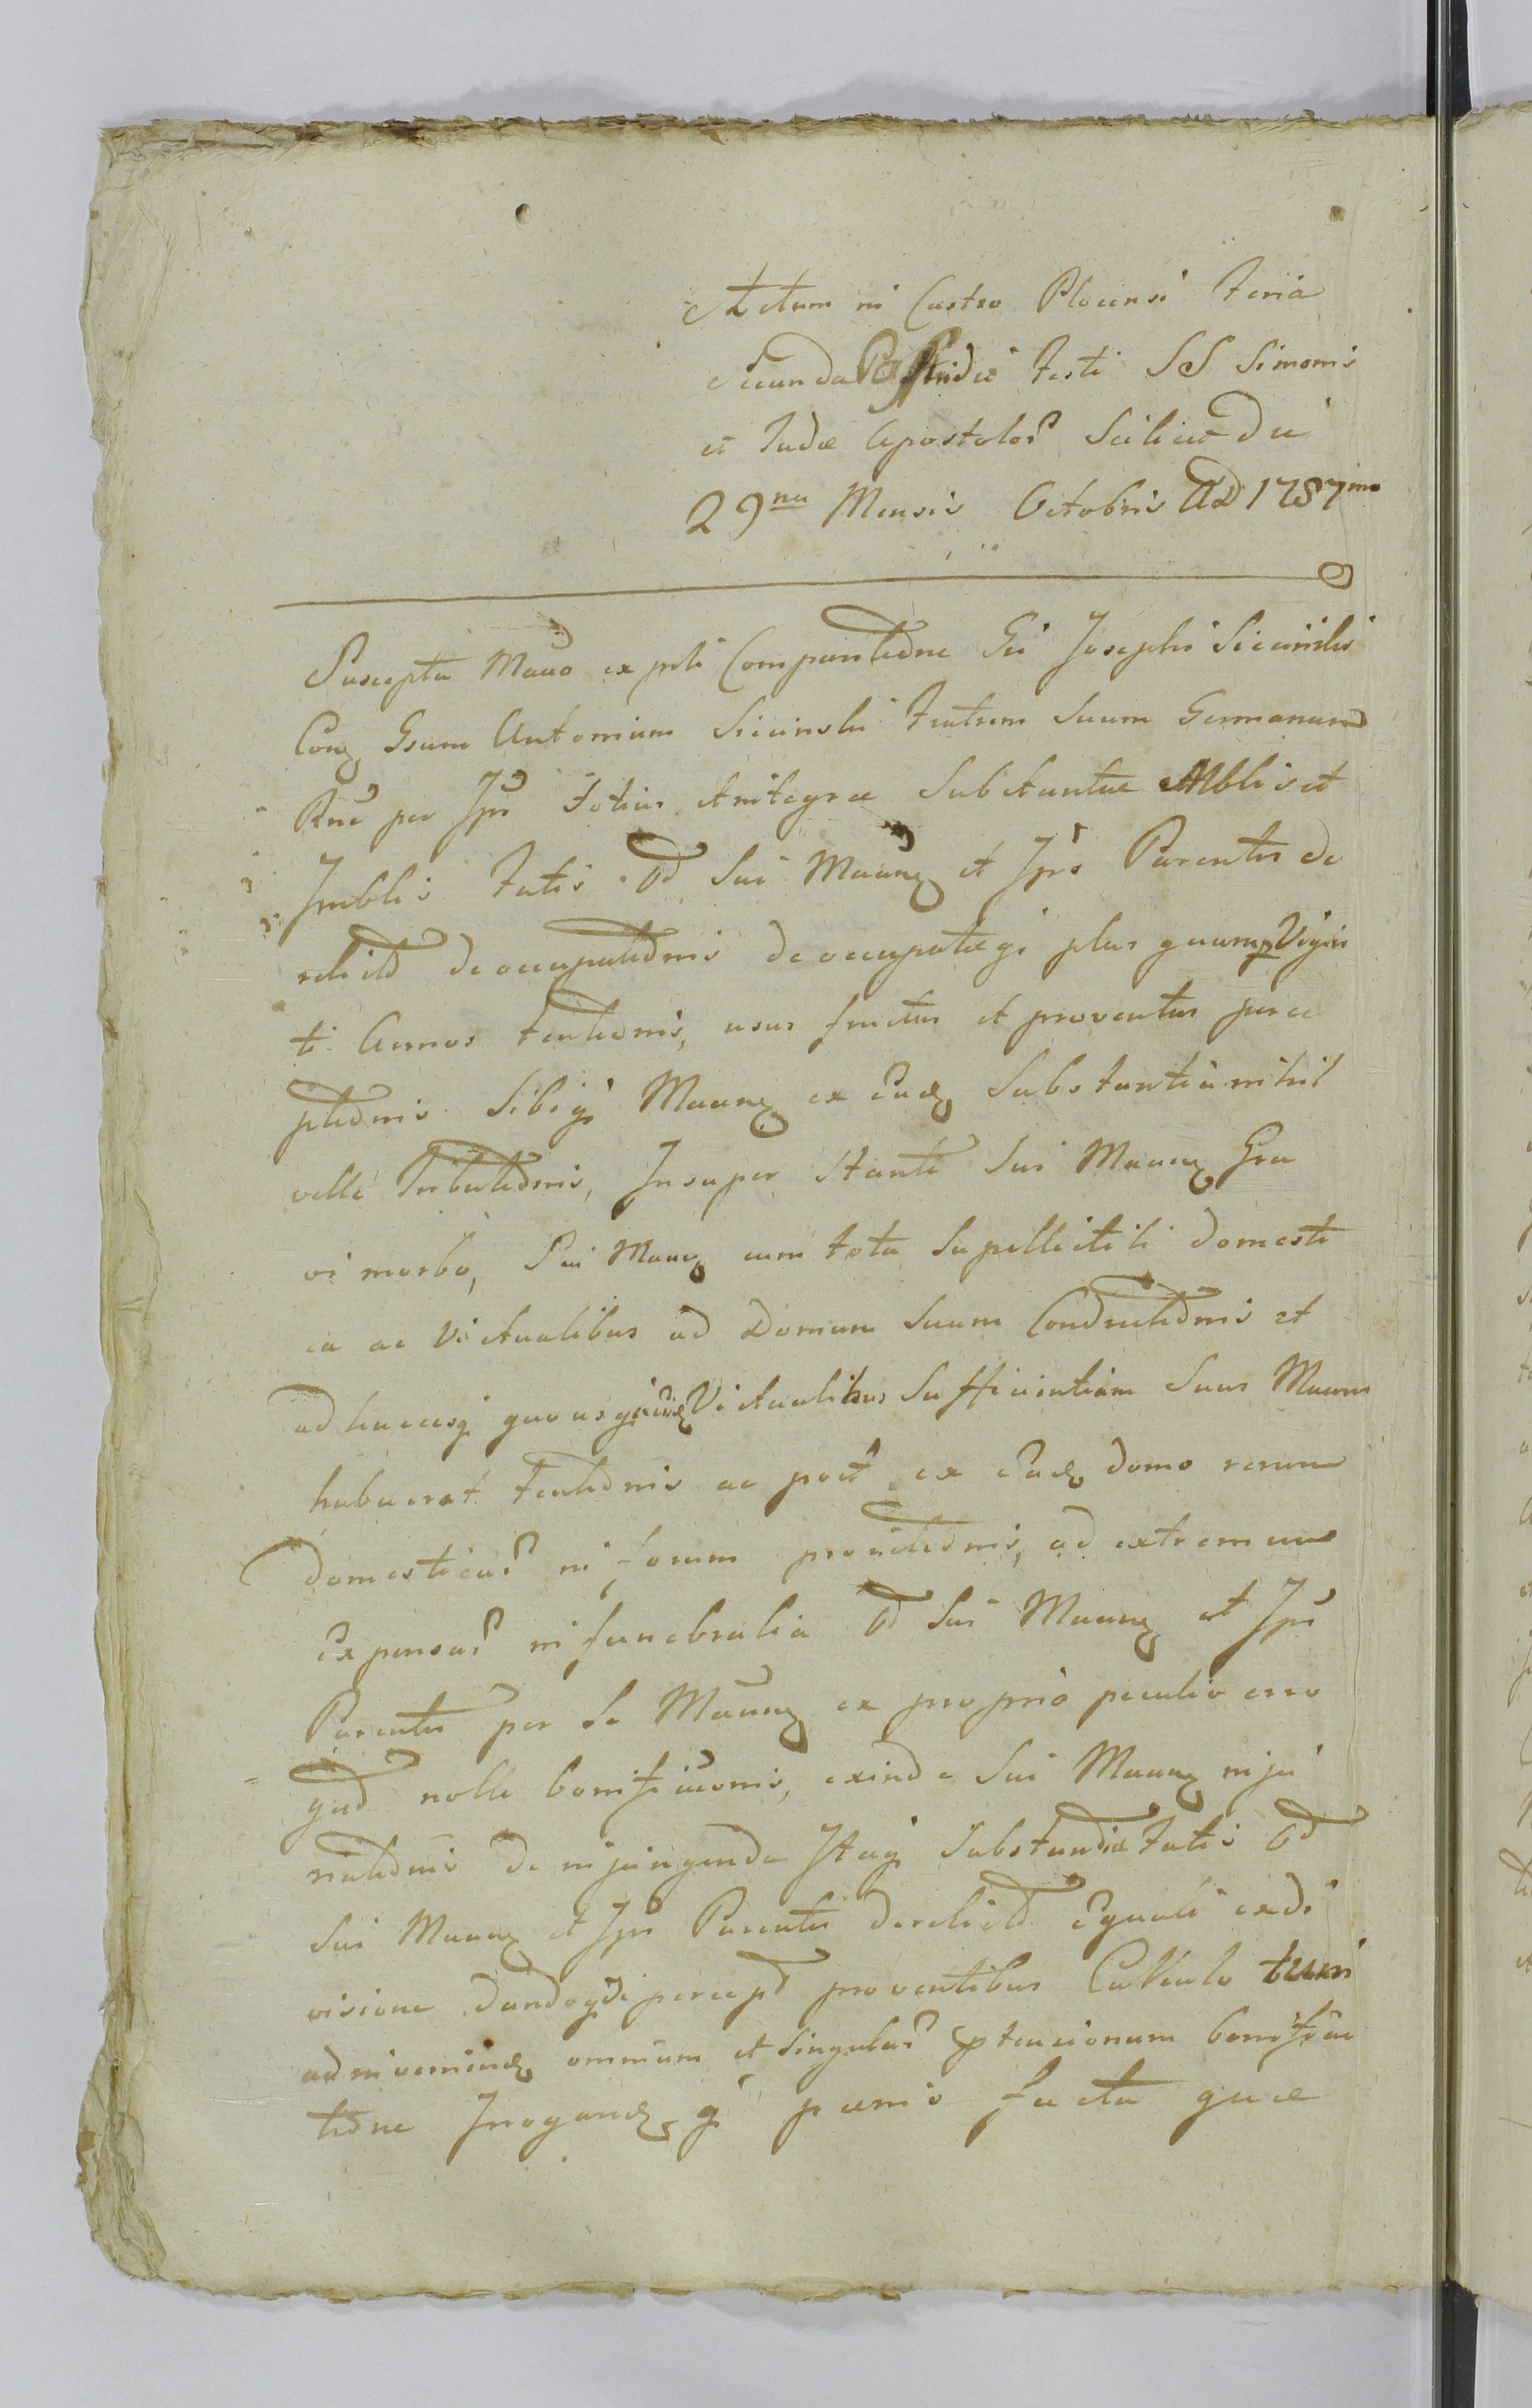 Actum in Castro Plocensi Feria
Secunda Postridie Festi SS Simonis
et Judæ Apostolor Scilicet Die
29na Mensis Octobris AD 1787mo
Suscepta Mao ex psti Comparitione Gsi Josephi Siecinski
Conq Gsum Antonium Siecinski Fratrem Suum Germanum
Rne per Ips Totius et integræ Substantiæ Mblis et
Imblis Fatis Od Sui Maanq et Ips Parentis de
relictd de occupatdnis de occupatæq plus quamq Vigin
ti Annos tentdnis, usus fructus et proventus perce
ptdnis Sibiq Maanq ex Eadq Substantia nihil
velle Tributdnis, Insuper Stante Sui Maanq Gra
vi morbo, Sui Maanq cum tota Supellectili domesti
ca ac Victualibus ad Domum Suam Conductdnis et
ad hucusq quousq Victualibus Sufficientiam Suus Maans
habuerat tentdnis ac post ex Eadq domo rerum
domesticar in forum, ad extremum
Expensar in funebralia Od Sui Maanq et Ips
Parentis per Se Maanq ex proprio peculio ero
gad nolle bonificaonis, exinde Sui Maanq inju
riatdnis de injungenda Itaq Substantiæ Fatis Od
Sui Maanq et Ips Parentis derelictd Equali exdi
visione dandoq de percepd proventibus Calculo tum
ad inveniendq omnium et Singular ptensionum bonifica
tdne Irrogandq q pænis facta quæ